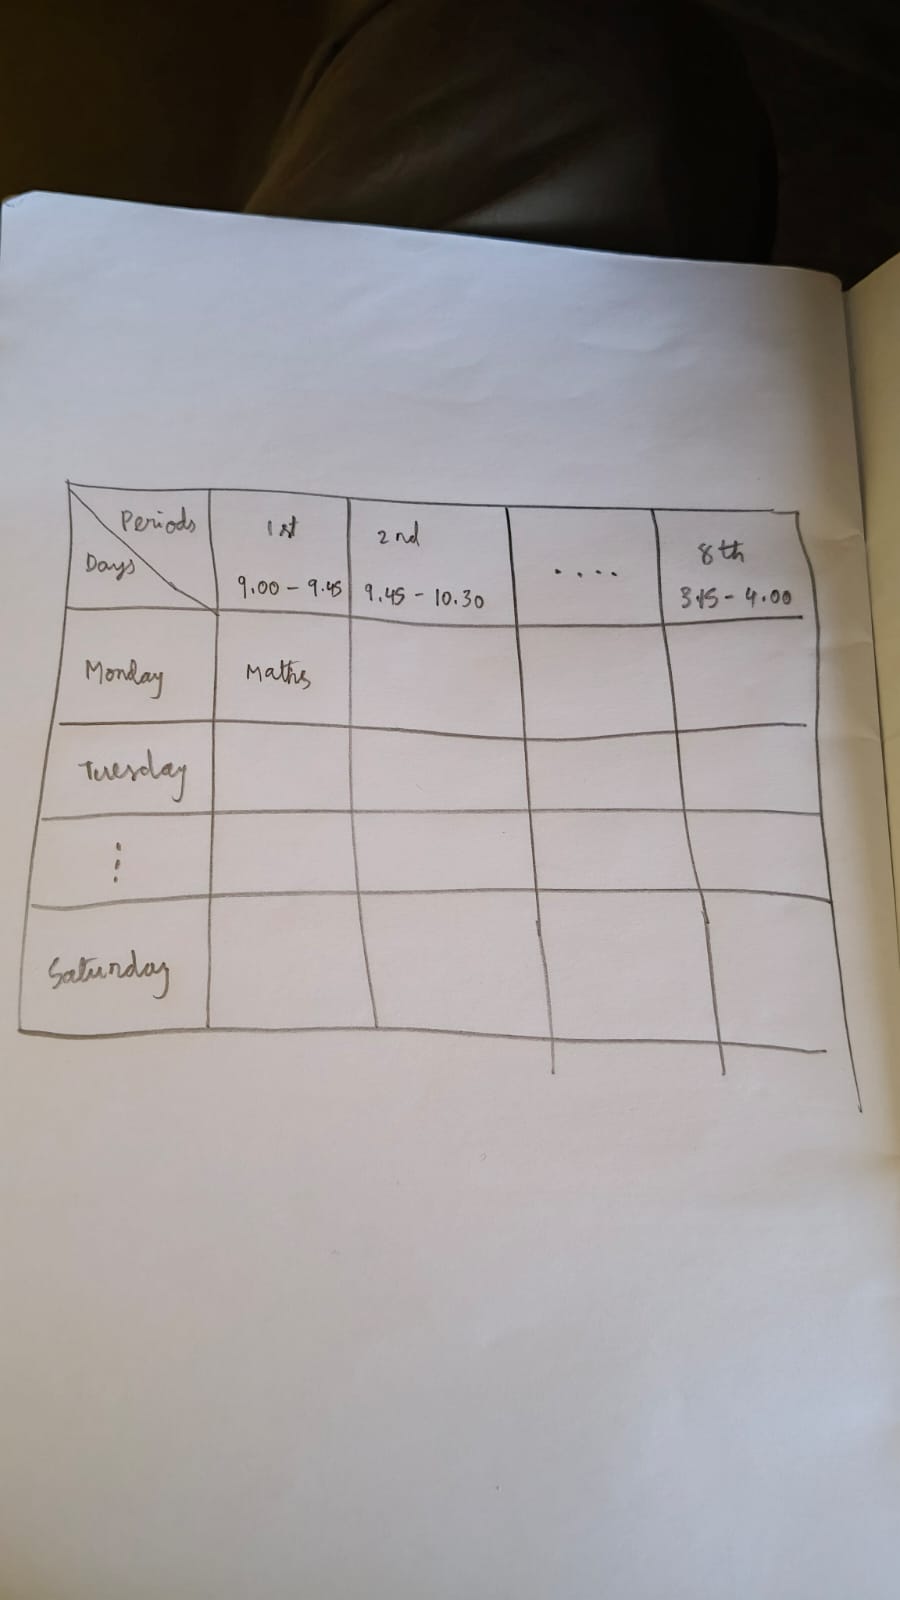 Periods
Days
1st
9.00 - 9.45
2nd
9.45 - 10.30
....
8th
3.15 - 4.00
Monday
Maths
Tuesday
⋮
Saturday